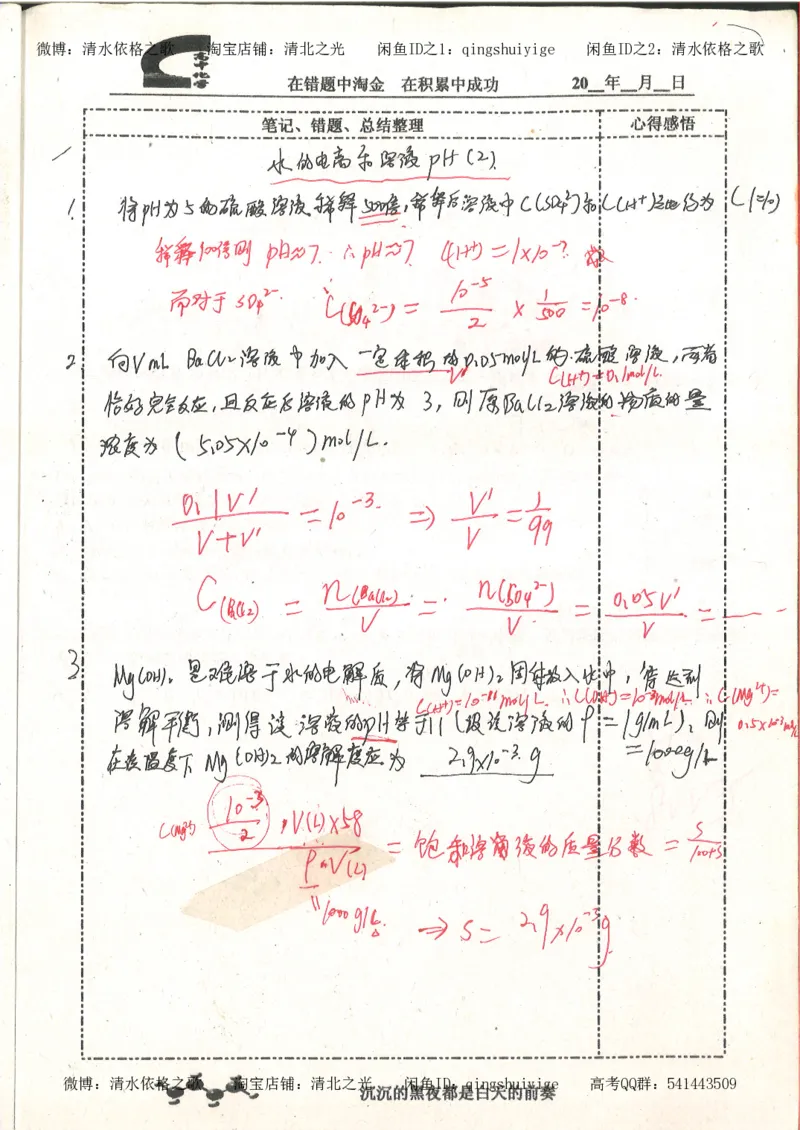 微博：清水依格之歌 淘宝店铺：清北之光 闲鱼ID之1：qingshuiyige 闲鱼ID之2：清水依格之歌
高中化学
在错题中淘金 在积累中成功 20__年__月__日
笔记、错题、总结整理 心得感悟
水的电离和溶液pH(2).
1. 将pH为5的硫酸溶液稀释500倍，稀释后溶液中C(SO₄²⁻)和C(H⁺)之比约为 (1=10)
稀释100倍则 pH≈7. ∴pH≈7 C(H⁺)=1×10⁻⁷.
而对于SO₄²⁻. C(SO₄²⁻) = 10⁻⁵/2 × 1/500 = 10⁻⁸.
2. 向VmL BaCl₂溶液中加入一定体积的0.05mol/L的硫酸溶液，两者
V' C(H⁺)=0.1mol/L.
恰好完全反应，且反应后溶液的pH为3，则原BaCl₂溶液的物质的量
浓度为(5.05×10⁻⁴)mol/L.
0.1V'/V+V' = 10⁻³. ⇒ V'/V = 1/99
C(BaCl₂) = n(BaCl₂)/V = n(SO₄²⁻)/V = 0.05V'/V =
3. Mg(OH)₂是难溶于水的电解质，将Mg(OH)₂固体放入水中，等达到
C(H⁺)=10⁻¹¹mol/L. ∴C(OH⁻)=10⁻³mol/L ∴C(Mg²⁺)=
0.5×10⁻³mol/L
溶解平衡，测得该溶液的pH等于11(假设溶液的ρ=1g/mL)，则
=1000g/L
在该温度下Mg(OH)₂的溶解度应为 2.9×10⁻³g
C(Mg²⁺) 10⁻³/2 · V(L)×58 / ρ·V(L) = 饱和溶液的质量分数 = S/100+S
1000g/L
⇒ S = 2.9×10⁻³g
微博：清水依格之歌 淘宝店铺：清北之光 闲鱼ID：qingshuiyige 高考QQ群：541443509
沉沉的黑夜都是白天的前奏